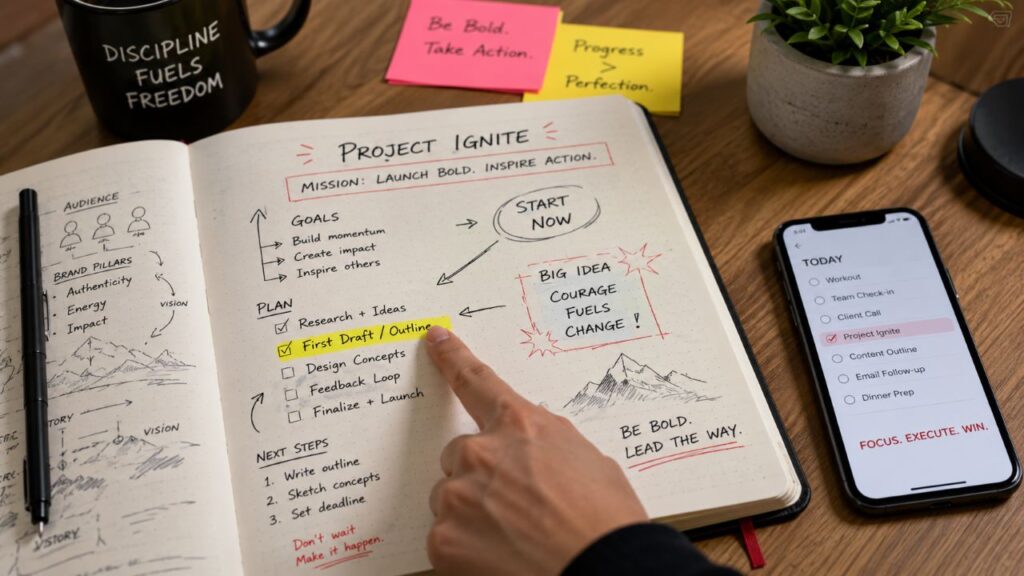 DISCIPLINE
FUELS
FREEDOM
Be Bold.
Take Action.
Progress
>
Perfection.
AUDIENCE
BRAND PILLARS
• Authenticity
• Energy
• Impact
VISION
VISION
PROJECT IGNITE
MISSION: LAUNCH BOLD. INSPIRE ACTION.
GOALS
Build momentum
Create impact
Inspire others
START
NOW
PLAN
Research + Ideas
First Draft / Outline
Design Concepts
Feedback Loop
Finalize + Launch
BIG IDEA
COURAGE
FUELS
CHANGE!
NEXT STEPS
1. Write outline
2. Sketch concepts
3. Set deadline
Don't wait
Make it happen.
BE BOLD.
LEAD THE WAY.
TODAY
Workout
Team Check-in
Client Call
Project Ignite
Content Outline
Email Follow-up
Dinner Prep
FOCUS. EXECUTE. WIN.